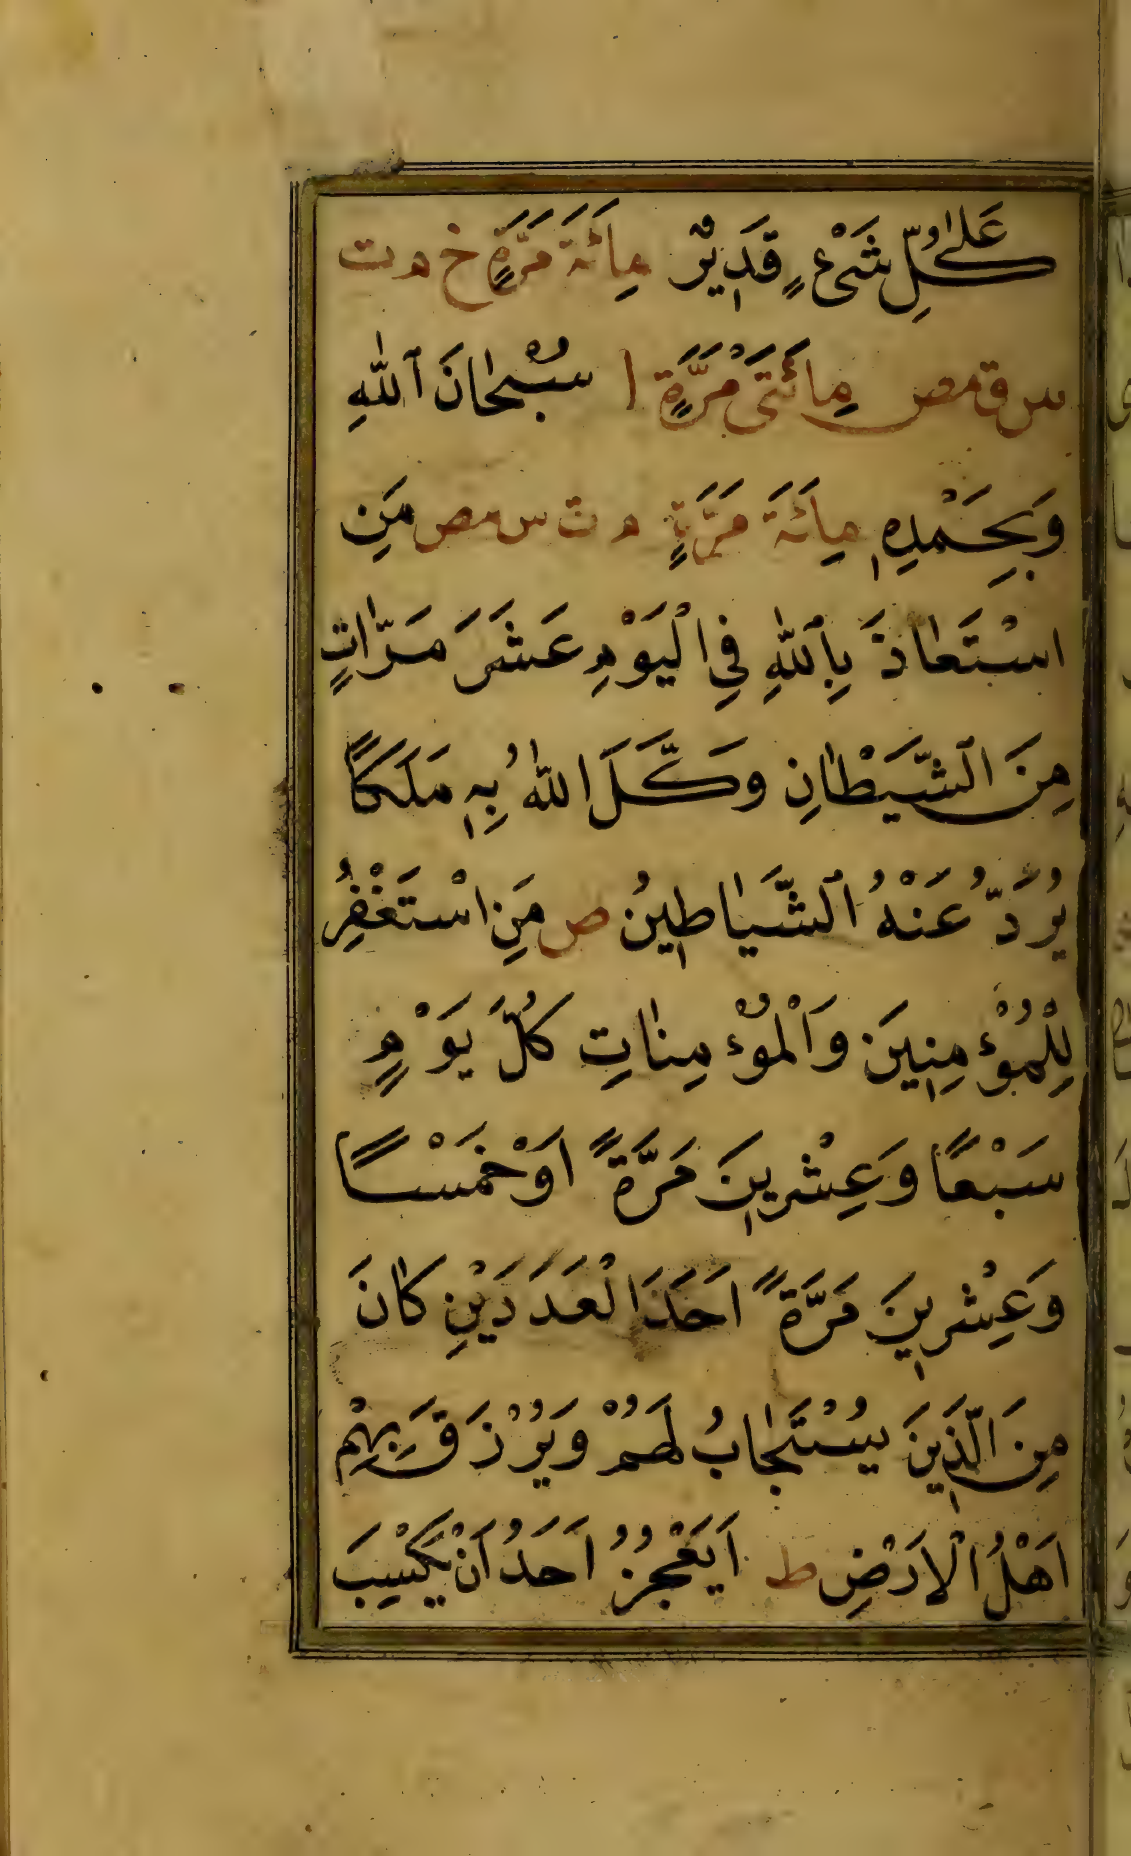 عَلٰى كُلِّ شَيْءٍ قَدِيْرٌ مِائَةَ مَرَّةٍ خ م ت
س ق مص مِائَتَيْ مَرَّةٍ ا سُبْحَانَ اللّٰهِ
وَبِحَمْدِهٖ مِائَةَ مَرَّةٍ م ت س مص مَنِ
اسْتَعَاذَ بِاللّٰهِ فِي الْيَوْمِ عَشَرَ مَرَّاتٍ
مِنَ الشَّيْطَانِ وَكَّلَ اللّٰهُ بِهٖ مَلَكًا
يُرَدُّ عَنْهُ الشَّيَاطِينُ ص مَنِ اسْتَغْفِرُ
لِلْمُؤْمِنِينَ وَالْمُؤْمِنَاتِ كُلَّ يَوْمٍ
سَبْعًا وَعِشْرِينَ مَرَّةً اَوْ خَمْسًا
وَعِشْرِينَ مَرَّةً اَحَدَ الْعَدَدَيْنِ كَانَ
مِنَ الَّذِينَ يُسْتَجَابُ لَهُمْ وَيُرْزَقَ بِهِمْ
اَهْلُ الْاَرْضِ ط اَيَعْجِزُ اَحَدُ اَنْ يَكْسِبَ